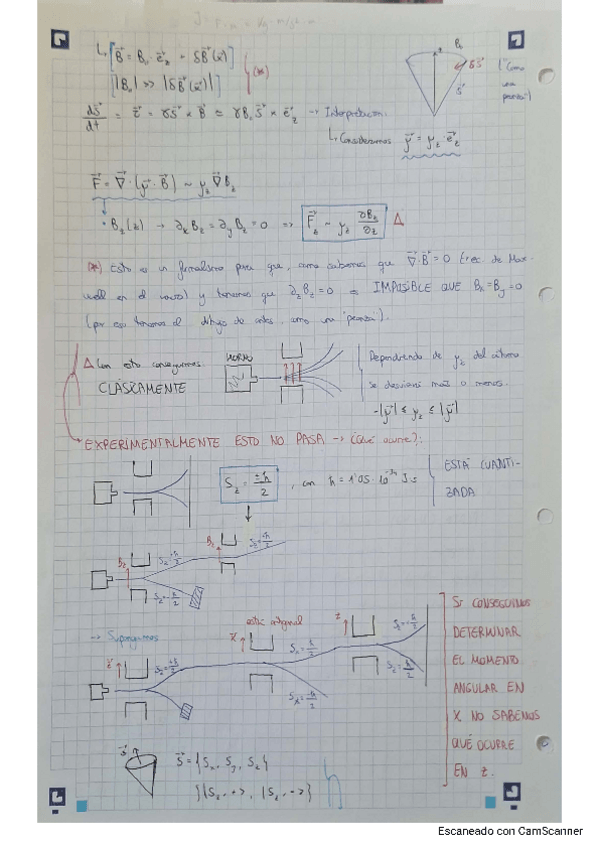 [B⃗ = B₀·e⃗_z + δB⃗(x⃗)]
[|B₀| >> |δB⃗(x⃗)|] (*)
B₀ δS⃗ S⃗ ("Como una peonza")
dS⃗/dt = τ⃗ = γS⃗ × B⃗ ≃ γB₀ S⃗ × e⃗_z → Interpretación.
↳ Consideramos μ⃗ = μ_z·e⃗_z
F⃗ = ∇⃗·(μ⃗·B⃗) ~ μ_z ∇⃗B_z
• B_z(z) → ∂_x B_z = ∂_y B_z = 0 => F⃗_z ~ μ_z ∂B_z/∂z Δ
(*) Esto es un formalismo para que, como sabemos que ∇⃗·B⃗ = 0 (rec. de Max-
well en el vacío) y tenemos que ∂_z B_z = 0 = IMPOSIBLE QUE B_x = B_y = 0
(por eso tenemos el dibujo de antes, como una "peonza").
Δ Con esto conseguimos
CLÁSICAMENTE
HORNO
Dependiendo de μ_z del átomo
se desviará más o menos.
-|μ⃗| ≤ μ_z ≤ |μ⃗|
EXPERIMENTALMENTE ESTO NO PASA → ¿Qué ocurre?:
S_z = ±ħ/2 , con ħ = 1'05·10⁻³⁴ J·s
ESTÁ CUANTI-
ZADA
B_z S_z=+ħ/2 B_z S_z=+ħ/2
S_z=-ħ/2
→ Supongamos
z S_z=+ħ/2 X S_x=ħ/2 z S_z=+ħ/2
S_x=-ħ/2 S_z=-ħ/2
SI CONSEGUIMOS
DETERMINAR
EL MOMENTO
ANGULAR EN
X NO SABEMOS
QUÉ OCURRE
EN Z.
S⃗ S⃗ = {S_x, S_y, S_z}
{|S_z, +>, |S_z, ->}
Escaneado con CamScanner